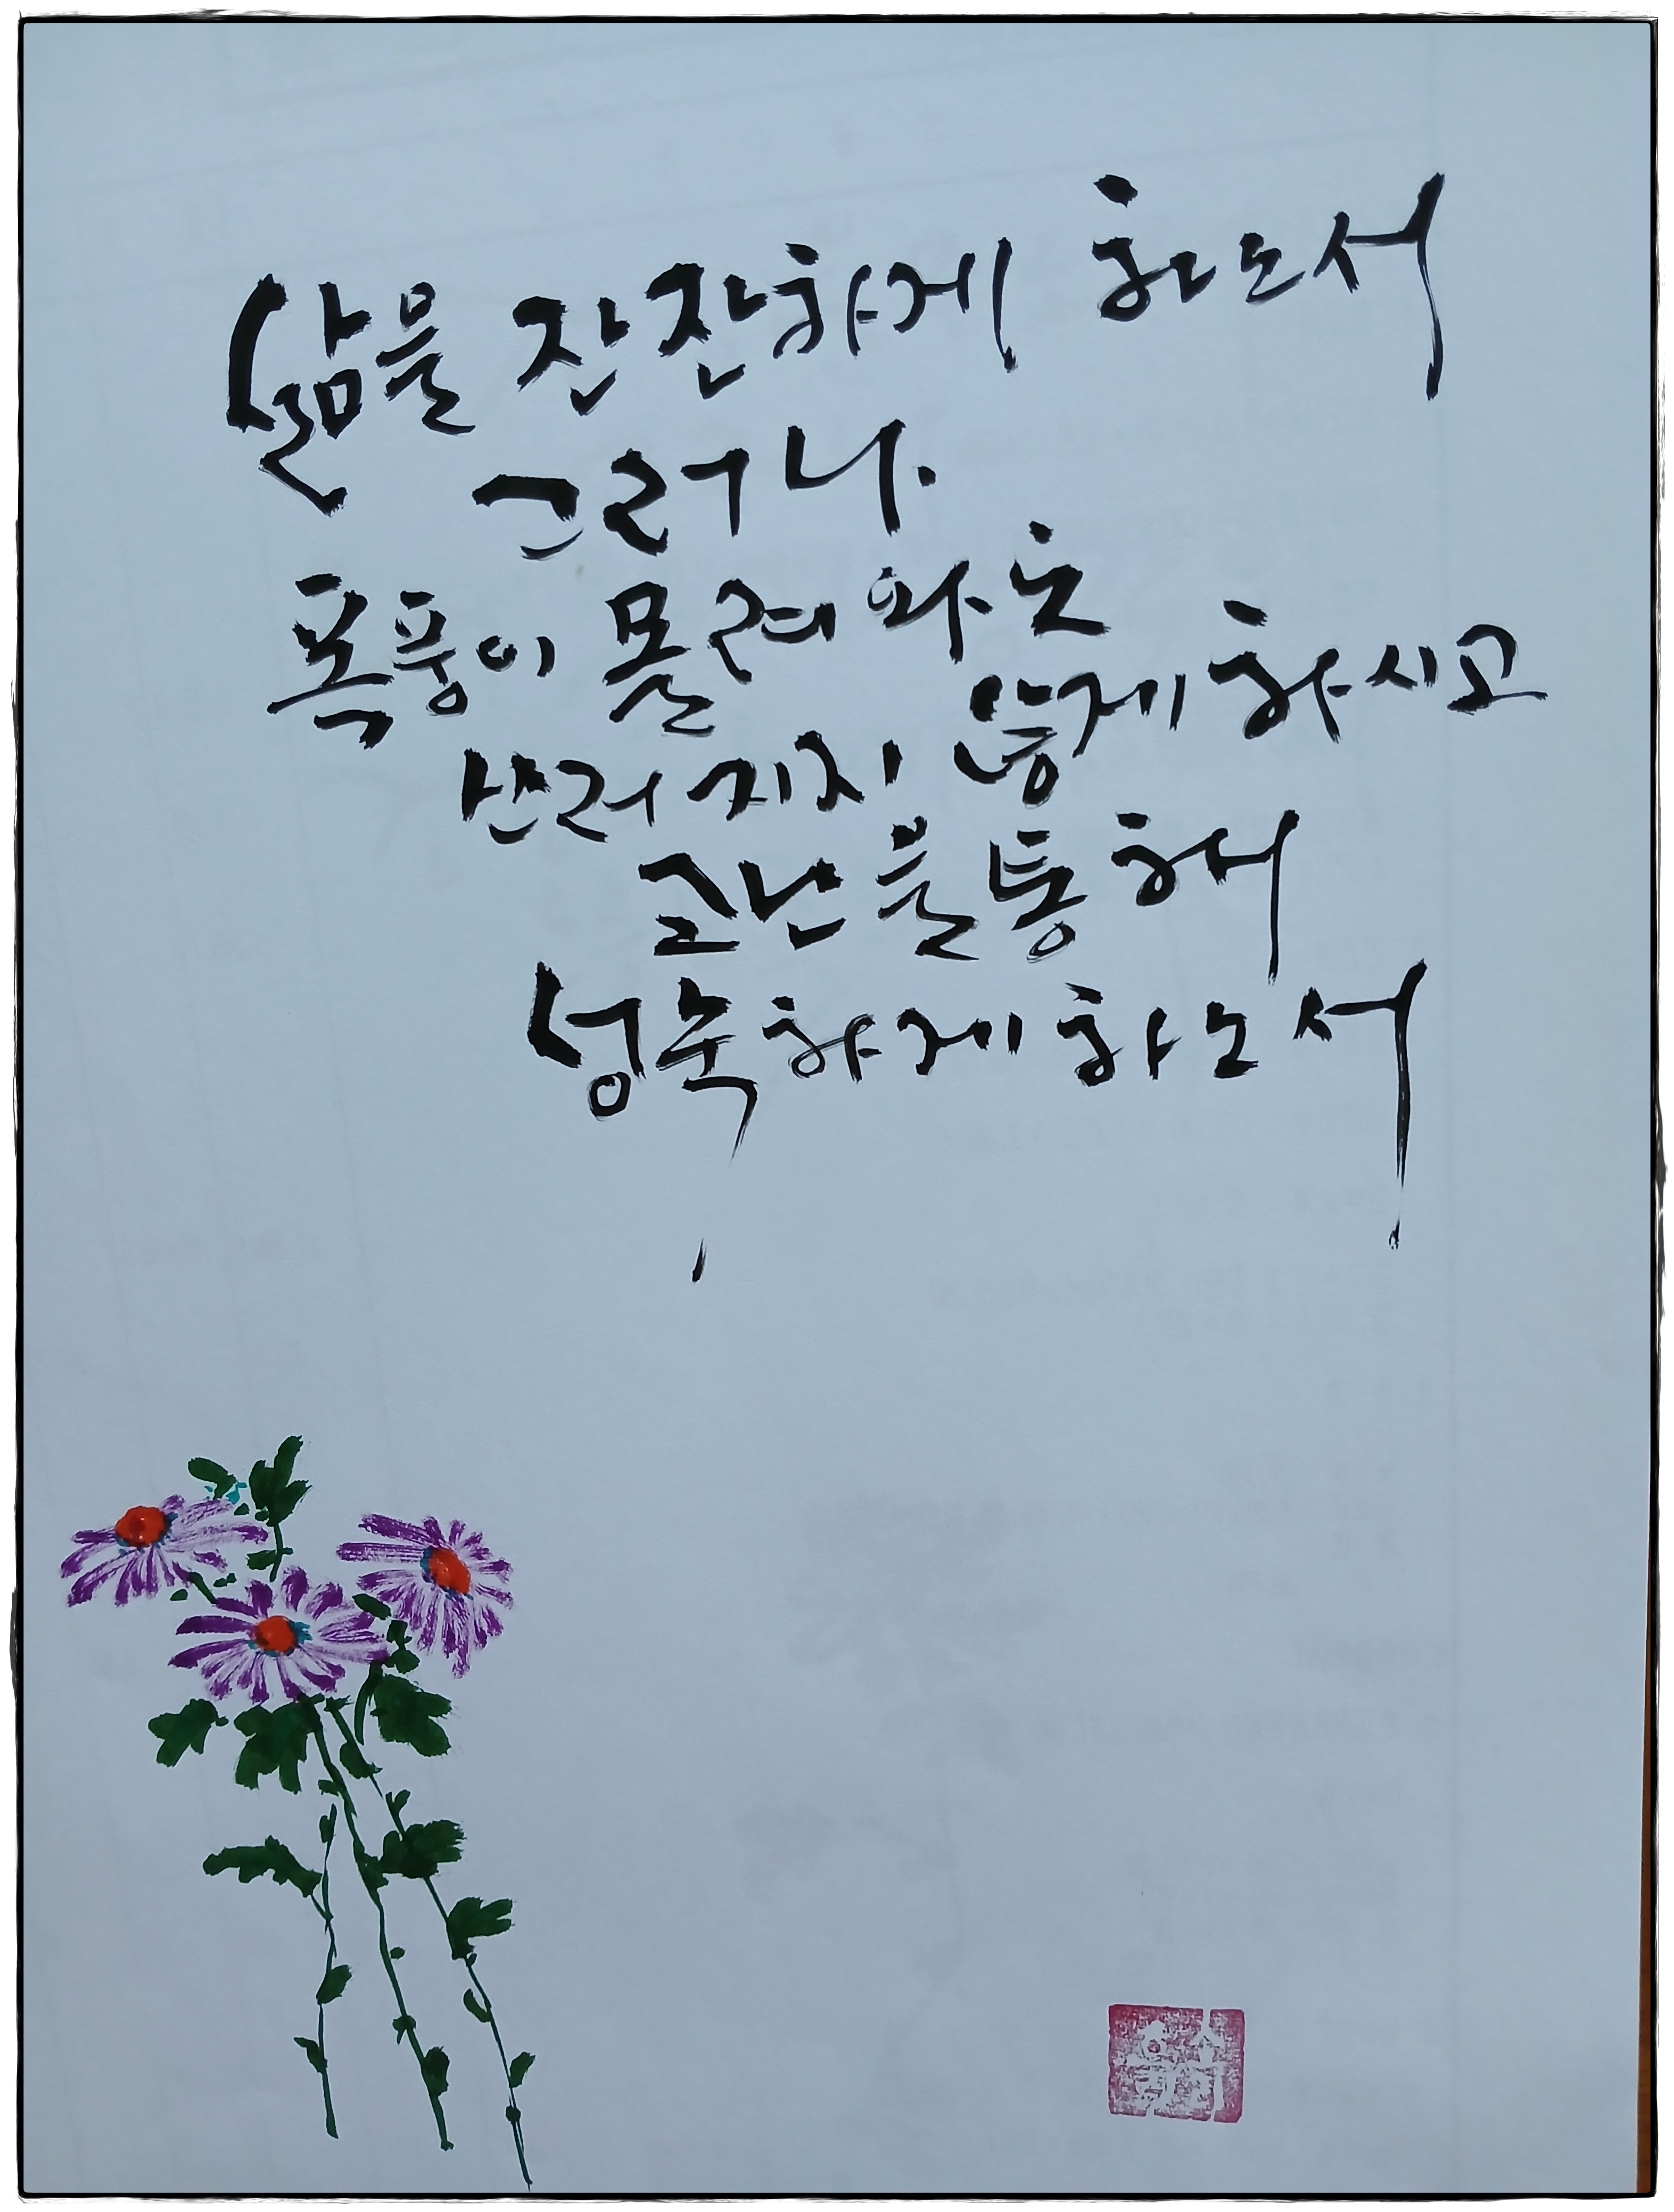 삶을 잔잔하게 하소서
그러나
폭풍이 몰려와도
쓰러지지 않게 하시고
고난을 통해
성숙하게 하소서